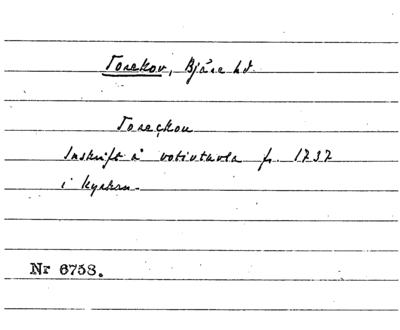 Torekov, Bjäre hd.
Toreckou
Inskrift å votivtavla fr. 1737
i kyrkan.
Nr 6758.